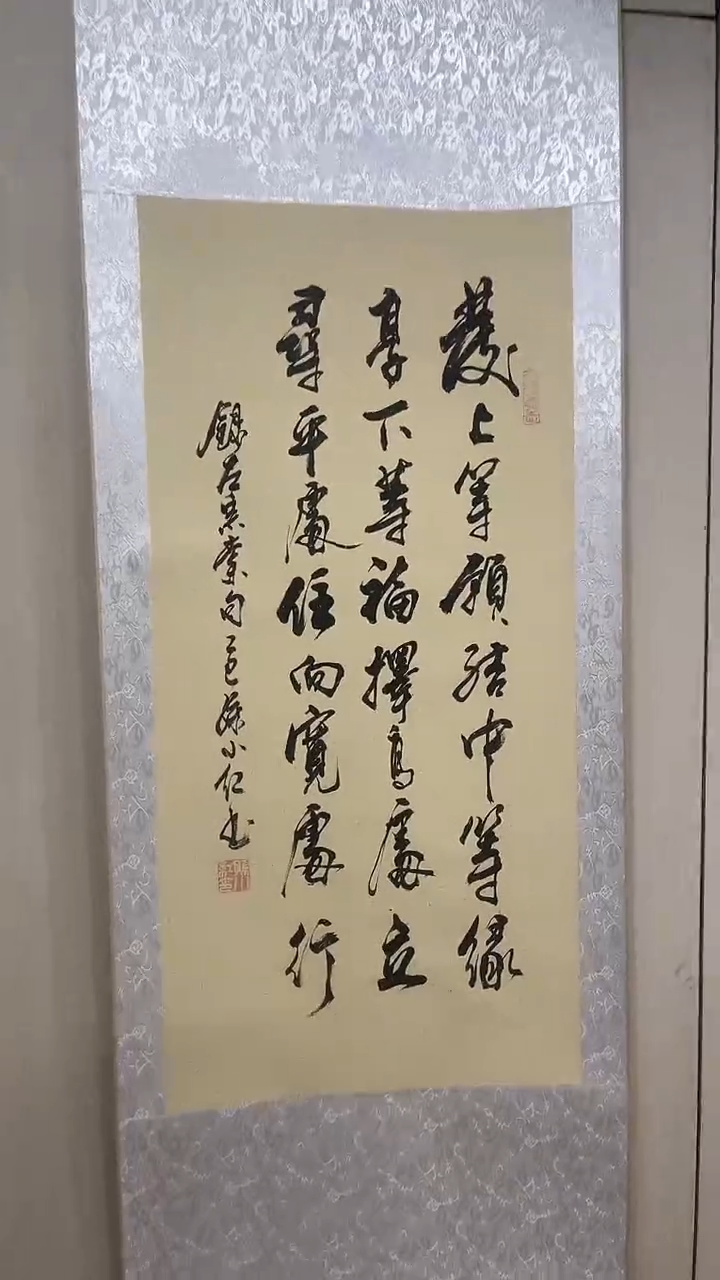 發上等願結中等緣
享下等福擇高處立
尋平處住向寬處行
錄左宗棠句
小仁書